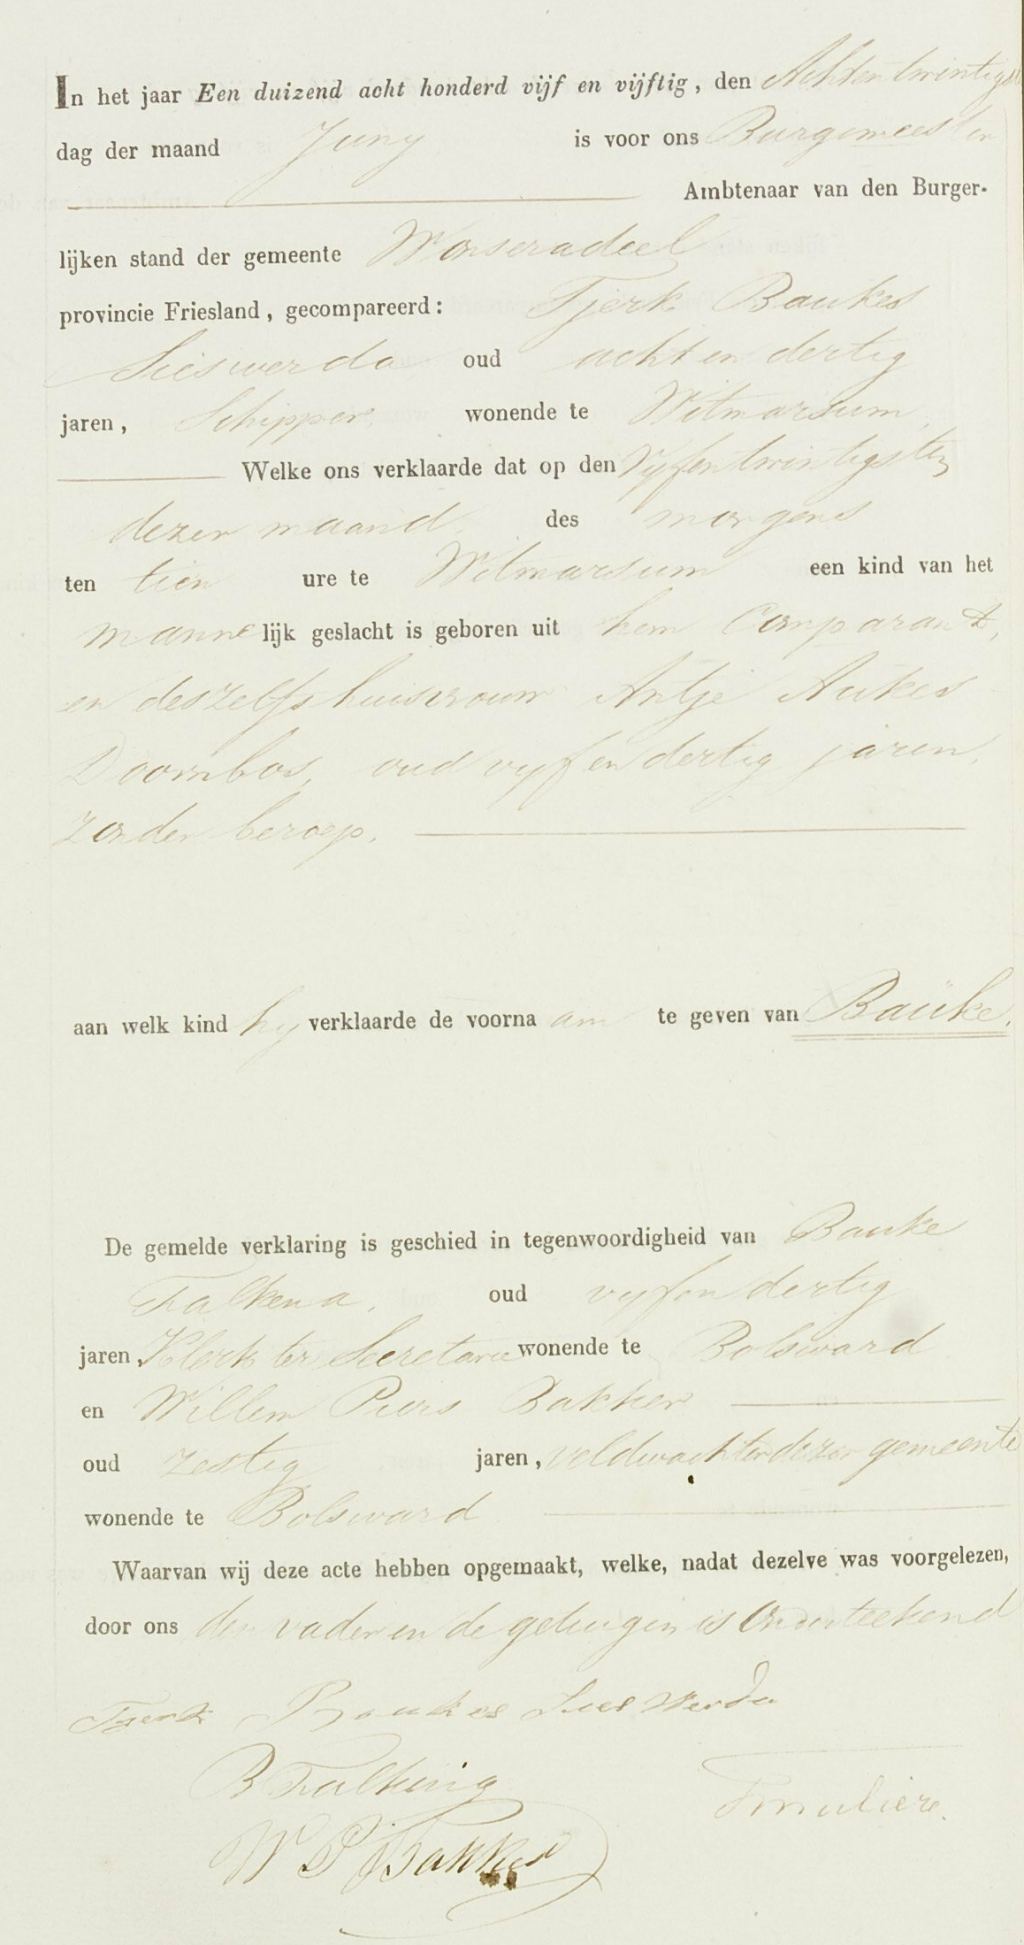 In het jaar Een duizend acht honderd vijf en vijftig, den Achtentwintigst
dag der maand Juny is voor ons Burgemeester
Ambtenaar van den Burger-
lijken stand der gemeente Wonseradeel
provincie Friesland, gecompareerd: Tjerk Baukes
Sieswerda oud acht en dertig
jaren, Schipper, wonende te Witmarsum,
Welke ons verklaarde dat op den Vyfentwintigsten
dezer maand, des morgens
ten tien ure te Witmarsum een kind van het
mannelijk geslacht is geboren uit hem Comparant,
en deszelfs huisvrouw Antje Aukes
Doornbos, oud vyf en dertig jaren,
zonder beroep.
aan welk kind hy verklaarde de voornaam te geven van Bauke.
De gemelde verklaring is geschied in tegenwoordigheid van Bauke
Falkena, oud vyfendertig
jaren, Klerk ter Secretarie wonende te Bolsward
en Willem Piers Bakker
oud zestig jaren, veldwachter dezer gemeente
wonende te Bolsward
Waarvan wij deze acte hebben opgemaakt, welke, nadat dezelve was voorgelezen,
door ons den vader en de getuigen is Onderteekend
Tjerk Baukes Sieswerda
B Falkena
W P Bakker